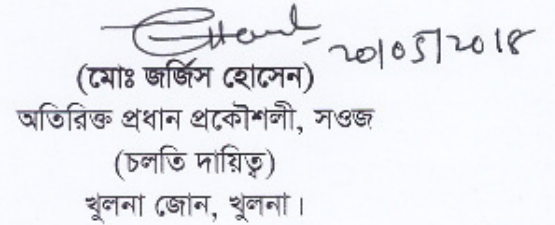 20/05/2018
(মোঃ জর্জিস হোসেন)
অতিরিক্ত প্রধান প্রকৌশলী, সওজ
(চলতি দায়িত্ব)
খুলনা জোন, খুলনা।